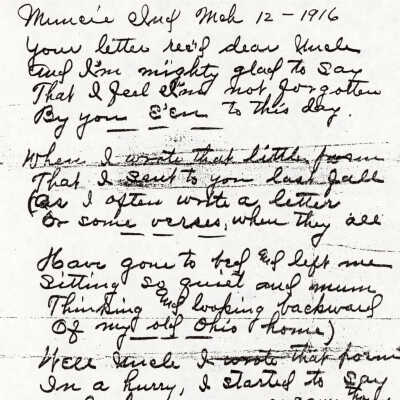 Muncie Ind Mch 12 - 1916
Your letter rec'd dear Uncle
And I'm mighty glad to say
That I feel I'm not forgotten
By you E'en to this day.
When I wrote that little poem
That I sent to you last fall
(As I often write a letter
Or some verses, when they all
Have gone to bed and left me
Sitting so quiet and mum
Thinking and looking backward
Of my old Ohio home)
Well Uncle I wrote that poem
In a hurry, I started to say